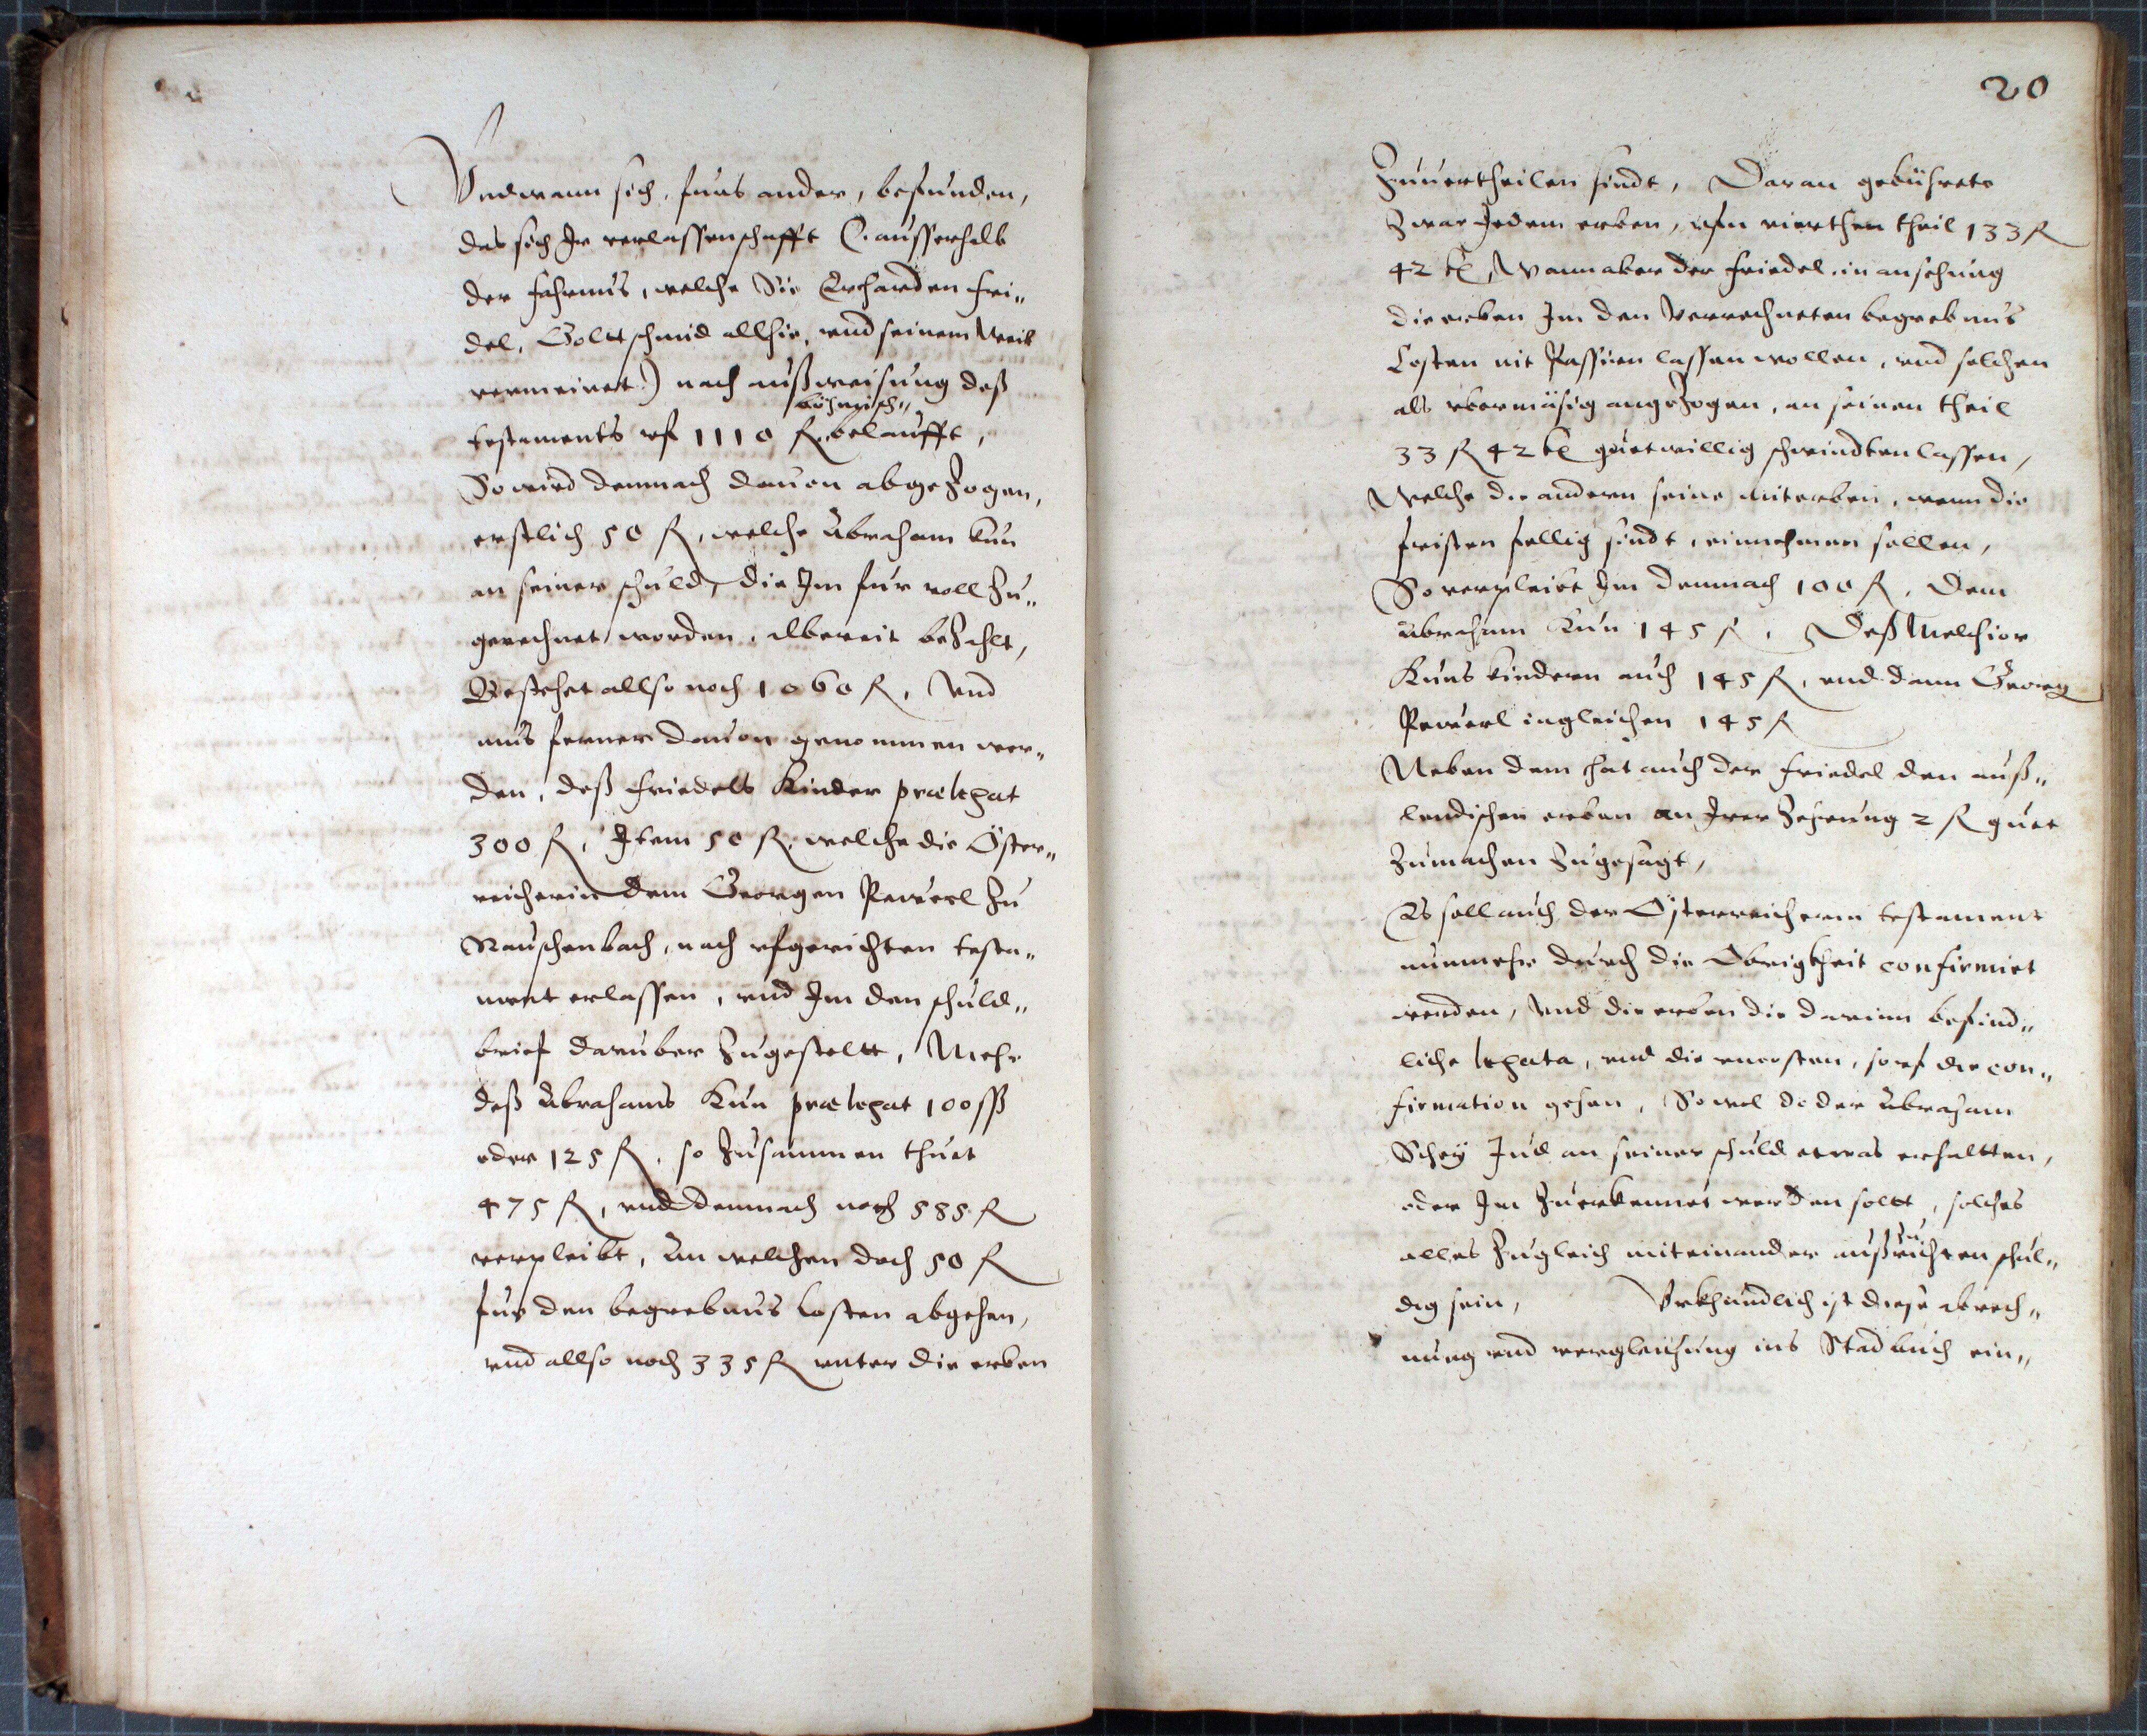 Vnd wann sich, fürs ander, befunden,
das sich Ir verlassenschafft (: ausserhalb
der fahrnus, welche Sie Erharden Fri„
del, Goldtschmid allhie, vnd seinem Weib
vermeinet:) nach außweisung deß
böhmisch„
testaments vf 1110 R. belaufft,
So wird demnach dauon abgezogen,
erstlich 50 R, welche Abraham Kun
an seiner schuld, die Im fur voll zu„
gerechnet worden, albereit bezahlt,
Bestehet allso noch 1060 R, Vnd
mus ferner dauon genommen wer„
den, deß Friedels Kinder prælegat
300 R, Item 50 R, welche die Öster„
reicherin dem Georgen Peuerl zu
Rauschenbach, nach vfgerichten testa„
ment erlassen, vnd Im den schuld„
brief daruber zugestellt, Mehr
deß Abrahams Kun prælegat 100 ß
oder 125 R, so zusammen thuet
475 R, vnd demnach noch 585 R
verpleibt, An welchen doch 50 R
fur den begrebnus Costen abgehen,
vnd allso noch 335 R vnter die erben
20
Zuuertheilen sindt, Daran gebührete
zwar Jedem erben, vfm vierthen theil 133 R
42 kl, Wann aber der Friedel, in ansehung
die erben Im den verrechneten begrebnus
Costen nit Passiren lassen wollen, vnd solchen
als vbermäsig angezogen, an seinen theil
33 R 42 kl guetwillig schwindten lassen,
Welche die andern seine miterben, wenn die
fristen fellig sindt, einnehmen sollen,
So verpleibt Im demnach 100 R, Dem
Abraham Kun 145 R, Deß Melchior
Kuns kindern auch 145 R, vnd dann Georg
Peuerl ingleichen 145 R
Neben dem hat auch der Friedel den auß„
lendischen erben an Irer Zehrung 2 R guet
zumachen zugesagt,
Es soll auch der Österreicherin testament
nunmehr durch die Obrigkheit confirmirt
werden, Vnd die erben die darinn befind„
liche legata, vnd die vncosten, so vf die con„
firmation gehen, Sowol do der Abraham
Schey Jud an seiner schuld etwas erhaltten,
oder Im zuerkennet werden sollt, solches
alles zugleich miteinander außzurichten schul„
dig sein, Vrkhundlich ist diese abrech„
nung vnd vergleichung ins Stadbuch ein„